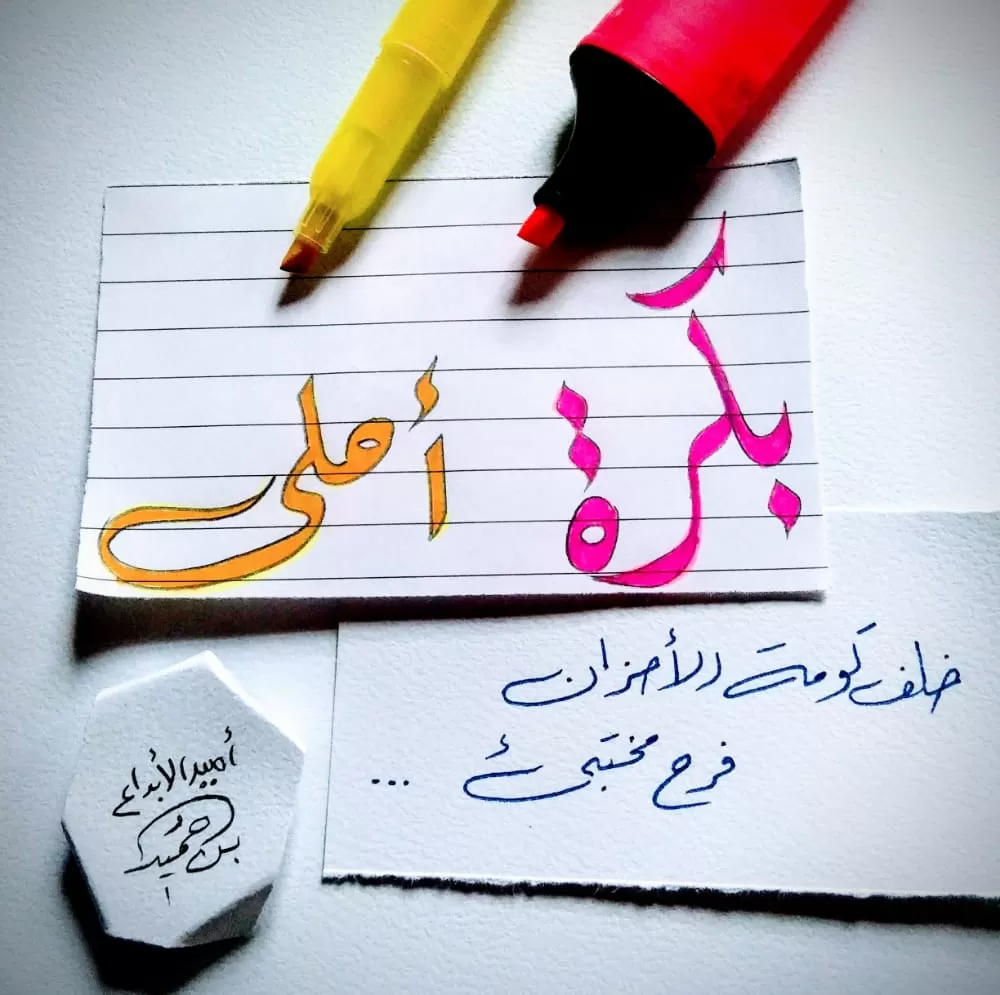 بكرة أحلى
خلف كومة الأحزان
فرح مختبئ ...
أمير الأبداع
بن حُميد